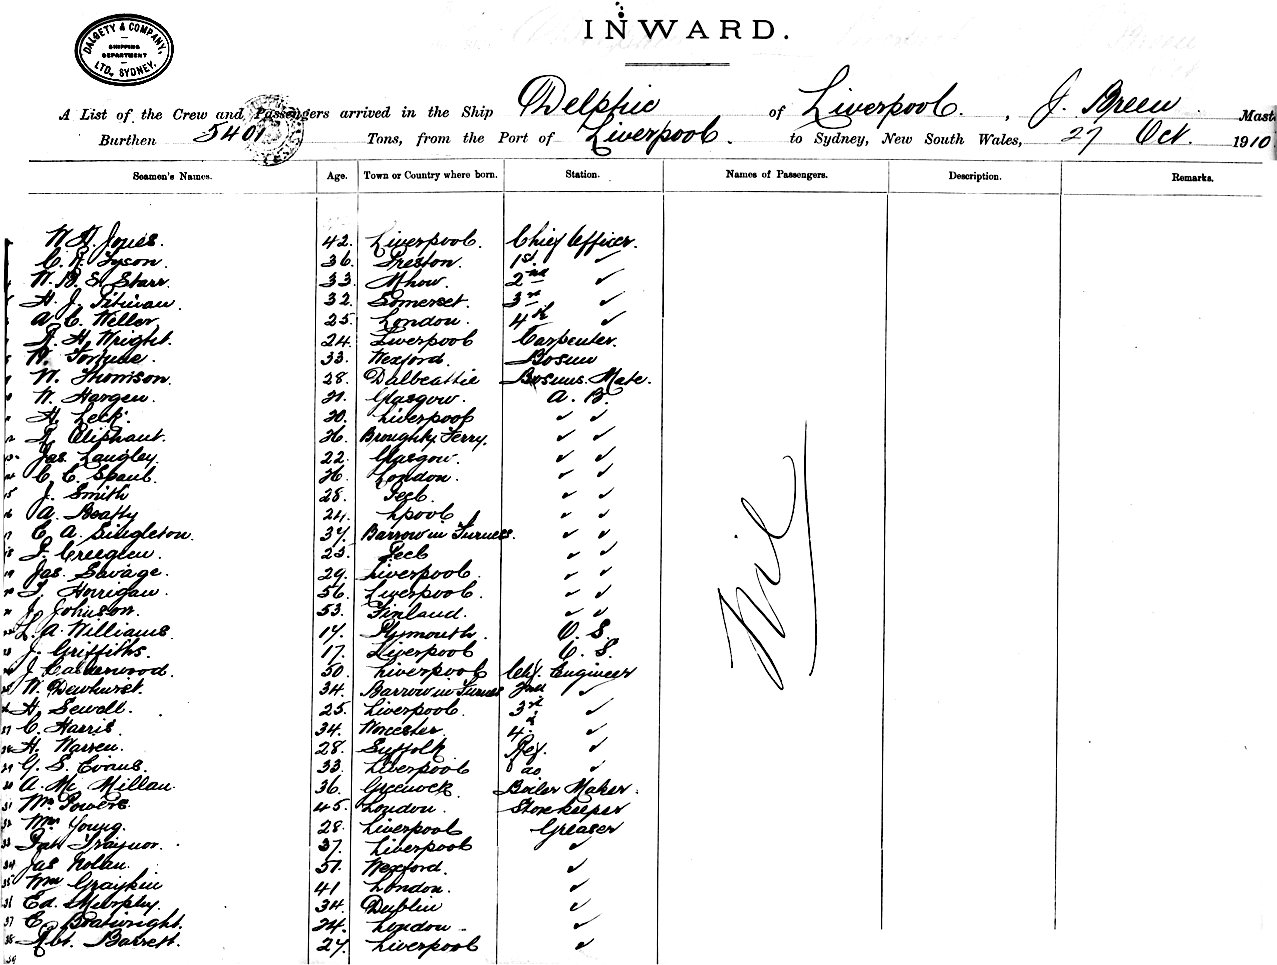 DALGETY & COMPANY, LTD., SYDNEY.
SHIPPING DEPARTMENT
INWARD.
A List of the Crew and Passengers arrived in the Ship Delphic of Liverpool. , J. Breen Mast
Burthen 5401 Tons, from the Port of Liverpool. to Sydney, New South Wales, 27 Oct. 1910
Seamen's Names. Age. Town or Country where born. Station. Names of Passengers. Description. Remarks.
W. H. Jones. 42. Liverpool. Chief Officer.
C. R. Tyson. 36. Preston. 1st. ✓
W. B. S. Starr. 33. Mhow. 2nd ✓
H. J. Pitman. 32. Somerset. 3rd ✓
A. C. Weller. 25. London. 4th ✓
R. H. Wright. 24. Liverpool Carpenter.
Fortune. 33. Wexford. Bosun
W. Thomson. 28. Dalbeattie Bosuns. Mate.
W. Hargen. 21. Glasgow. A. B.
H. Leck. 30. Liverpool ✓ ✓
Oliphant. 26. Broughty Ferry. ✓ ✓
Jas. Langley. 22. Glasgow. ✓ ✓
C. E. Spaul. 26. London. ✓ ✓
J. Smith 28. Peel. ✓ ✓
A. Beatty 24. Lpool ✓ ✓
E. A. Singleton. 37. Barrow in Furness. ✓ ✓
Creeglen. 23. Peel ✓ ✓
Jas. Savage. 29. Liverpool. ✓ ✓
T. Horrigan. 56. Liverpool. ✓ ✓
J. Johnson. 53. Finland. ✓ ✓
L. A. Williams. 17. Plymouth. O. S.
J. Griffiths. 17. Liverpool O. S.
J. Calderwood. 50. Liverpool Chf. Engineer
W. Dewhurst. 34. Barrow in Furness 2nd ✓
H. Sewell. 25. Liverpool. 3rd ✓
C. Harris. 34. Worcester. 4. ✓
H. Warren. 28. Suffolk Ref. ✓
G. S. Evans. 33. Liverpool do ✓
A. Mc Millan. 36. Greenock Boiler Maker.
Wm Powers. 45. London. Storekeeper
Wm Young. 28. Liverpool Greaser
Pat Traynor. 37. Liverpool ✓
Jas Nolan. 51. Wexford. ✓
Wm Graykin 41 London. ✓
Ed. Murphy. 34. Dublin ✓
E. Boatwright. 24. London ✓
Rbt. Barrett. 27. Liverpool ✓
Nil